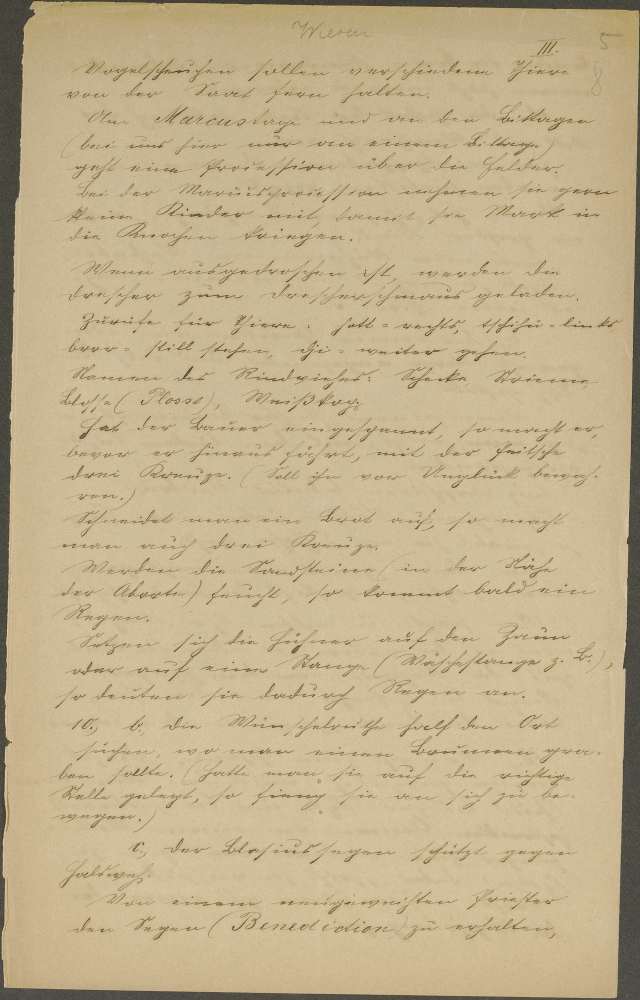 III.
5
8
Vogelscheuchen sollen verschiedene Thiere
von der Saat fern halten.
Am Marcustage und an den Bittagen
(bei uns hier nur an einem Bittage)
geht eine Procession über die Felder.
Bei der Marcusprocession nehmen sie gern
kleine Kinder mit, damit sie Mark in
die Knochen kriegen.
Wenn ausgedroschen ist, werden die
Drescher zum Drescherschmaus geladen.
Zurufe für Thiere: hott = rechts, tschihü = links
brrr = still stehen, dji = weiter gehen.
Namen des Rindviehes: Schecke, Strieme,
Blosse (Plosse), Weißkopf
Hat der Bauer eingespannt, so macht er,
bevor er hinaus fährt, mit der Peitsche
drei Kreuze. (Soll ihn vor Unglück bewah-
ren.)
Schneidet man ein Brot auf, so macht
man auch drei Kreuze.
Werden die Sandsteine (in der Nähe
der Aborte) feucht, so kommt bald ein
Regen.
Setzen sich die Hühner auf den Zaun
oder auf eine Stange (Wäschstange z. B.),
so deuten sie dadurch Regen an.
10., b., die Wünschelruthe half den Ort
suchen, wo man einen Brunnen gra-
ben sollte. (Hatte man sie auf die richtige
Stelle gelegt, so fieng sie an sich zu be-
wegen.)
c., der Blasiussegen schützt gegen
Halsweh.
Von einem neugeweihten Priester
den Segen (Benediction) zu erhalten,